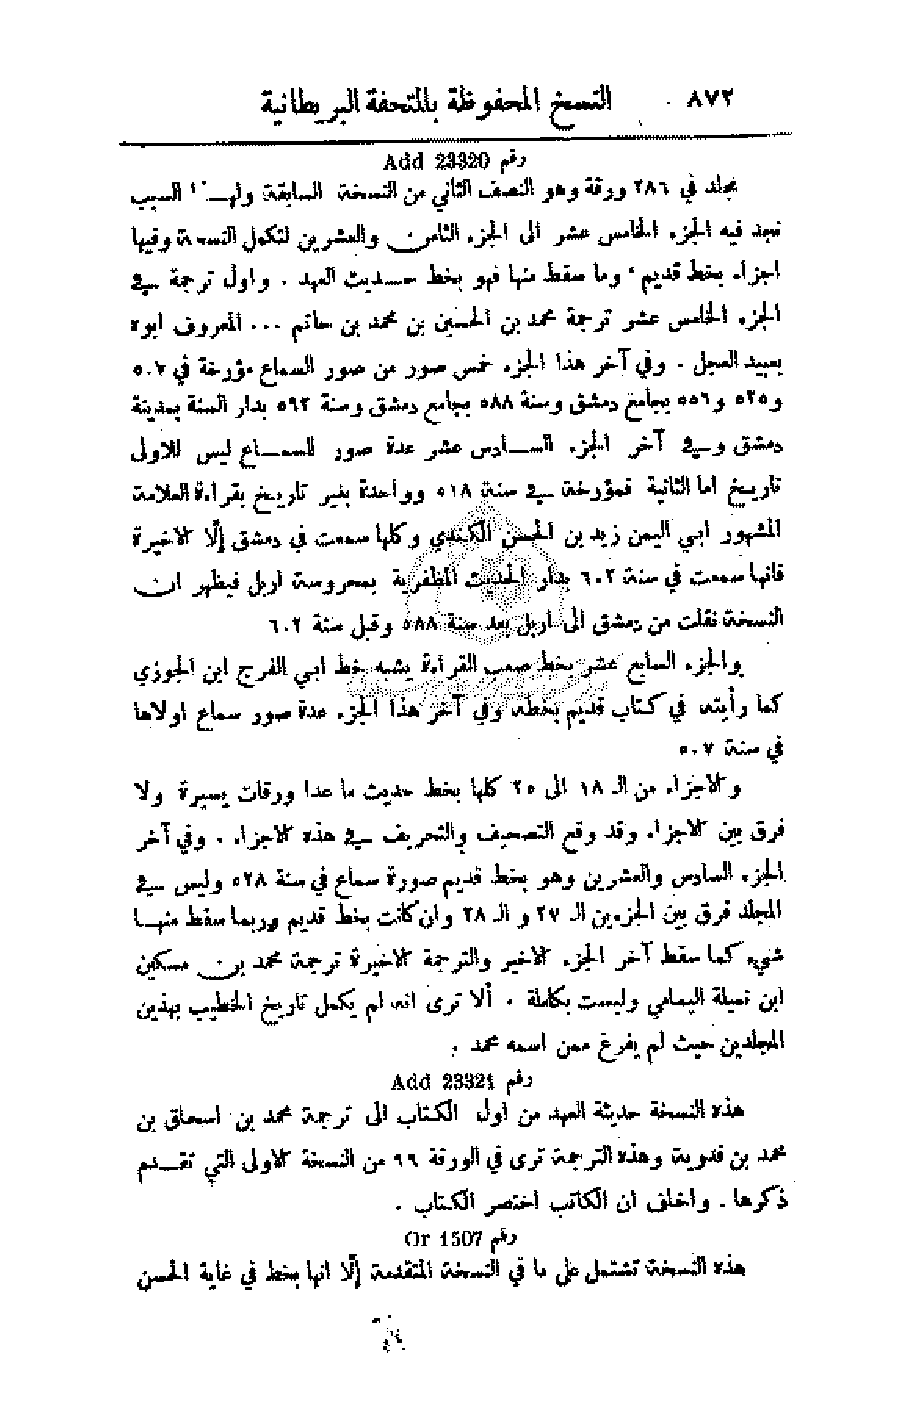 ٨٧٢ النسخ المحفوظة بالمتحفة البريطانية
رقم Add 23320
مجلد في ٢٨٦ ورقة وهو النصف الثاني من النسخة السابقة ولهـذا السبب
نجد فيه الجزء الخامس عشر الى الجزء الثامن والعشرين لتكمل النسخة وفيها
اجزاء بخط قديم وما سقط منها فهو بخط حـديث العهد . واول ترجمة في
الجزء الخامس عشر ترجمة محمد بن الحسين بن محمد بن حاتم ... المعروف ابوه
بعبيد العجل . وفي آخر هذا الجزء خمس صور من صور السماع مؤرخة في ٥٠٧
و٥٢٥ و٥٥٦ بجامع دمشق وسنة ٥٨٨ بجامع دمشق وسنة ٥٩٢ بدار السنة بمدينة
دمشق وفي آخر الجزء السـادس عشر عدة صور للسمـاع ليس للاولى
تاريخ اما الثانية فمؤرخة في سنة ٥١٨ وواحدة بغير تاريخ بقراءة العلامة
المشهور ابي اليمن زيد بن الحسن الكندي وكلها سمعت في دمشق إلّا الاخيرة
فانها سمعت في سنة ٦٠٢ بدار الحديث المظفرية بمحروسة اربل فيظهر ان
النسخة نقلت من دمشق الى اربل بعد سنة ٥٨٨ وقبل سنة ٦٠٢
والجزء السابع عشر بخط صعب القراءة يشبه خط ابي الفرج ابن الجوزي
كما رأيته في كتاب قديم بخطه وفي آخر هذا الجزء عدة صور سماع اولاها
في سنة ٥٠٧
والاجزاء من الـ ١٨ الى ٢٥ كلها بخط حديث ما عدا ورقات يسيرة ولا
فرق بين الاجزاء وقد وقع التصحيف والتحريف في هذه الاجزاء . وفي آخر
الجزء السادس والعشرين وهو بخط قديم صورة سماع في سنة ٥٢٨ وليس في
المجلد فرق بين الجزءين الـ ٢٧ و الـ ٢٨ وان كانت بخط قديم وربما سقط منهـا
شيء كما سقط آخر الجزء الاخير والترجمة الاخيرة ترجمة محمد بن مسكين
ابن نميلة اليمامي وليست بكاملة . ألا ترى انه لم يكمل تاريخ الخطيب بهذين
المجلدين حيث لم يفرغ ممن اسمه محمد .
رقم Add 23321
هذه النسخة حديثة العهد من اول الكتاب الى ترجمة محمد بن اسحاق بن
محمد بن فدوية وهذه الترجمة ترى في الورقة ٩٦ من النسخة الاولى التي تقـدم
ذكرها . واخلق ان الكاتب اختصر الكتاب .
رقم Or 1507
هذه النسخة تشتمل على ما في النسخة المتقدمة إلّا انها بخط في غاية الحسن